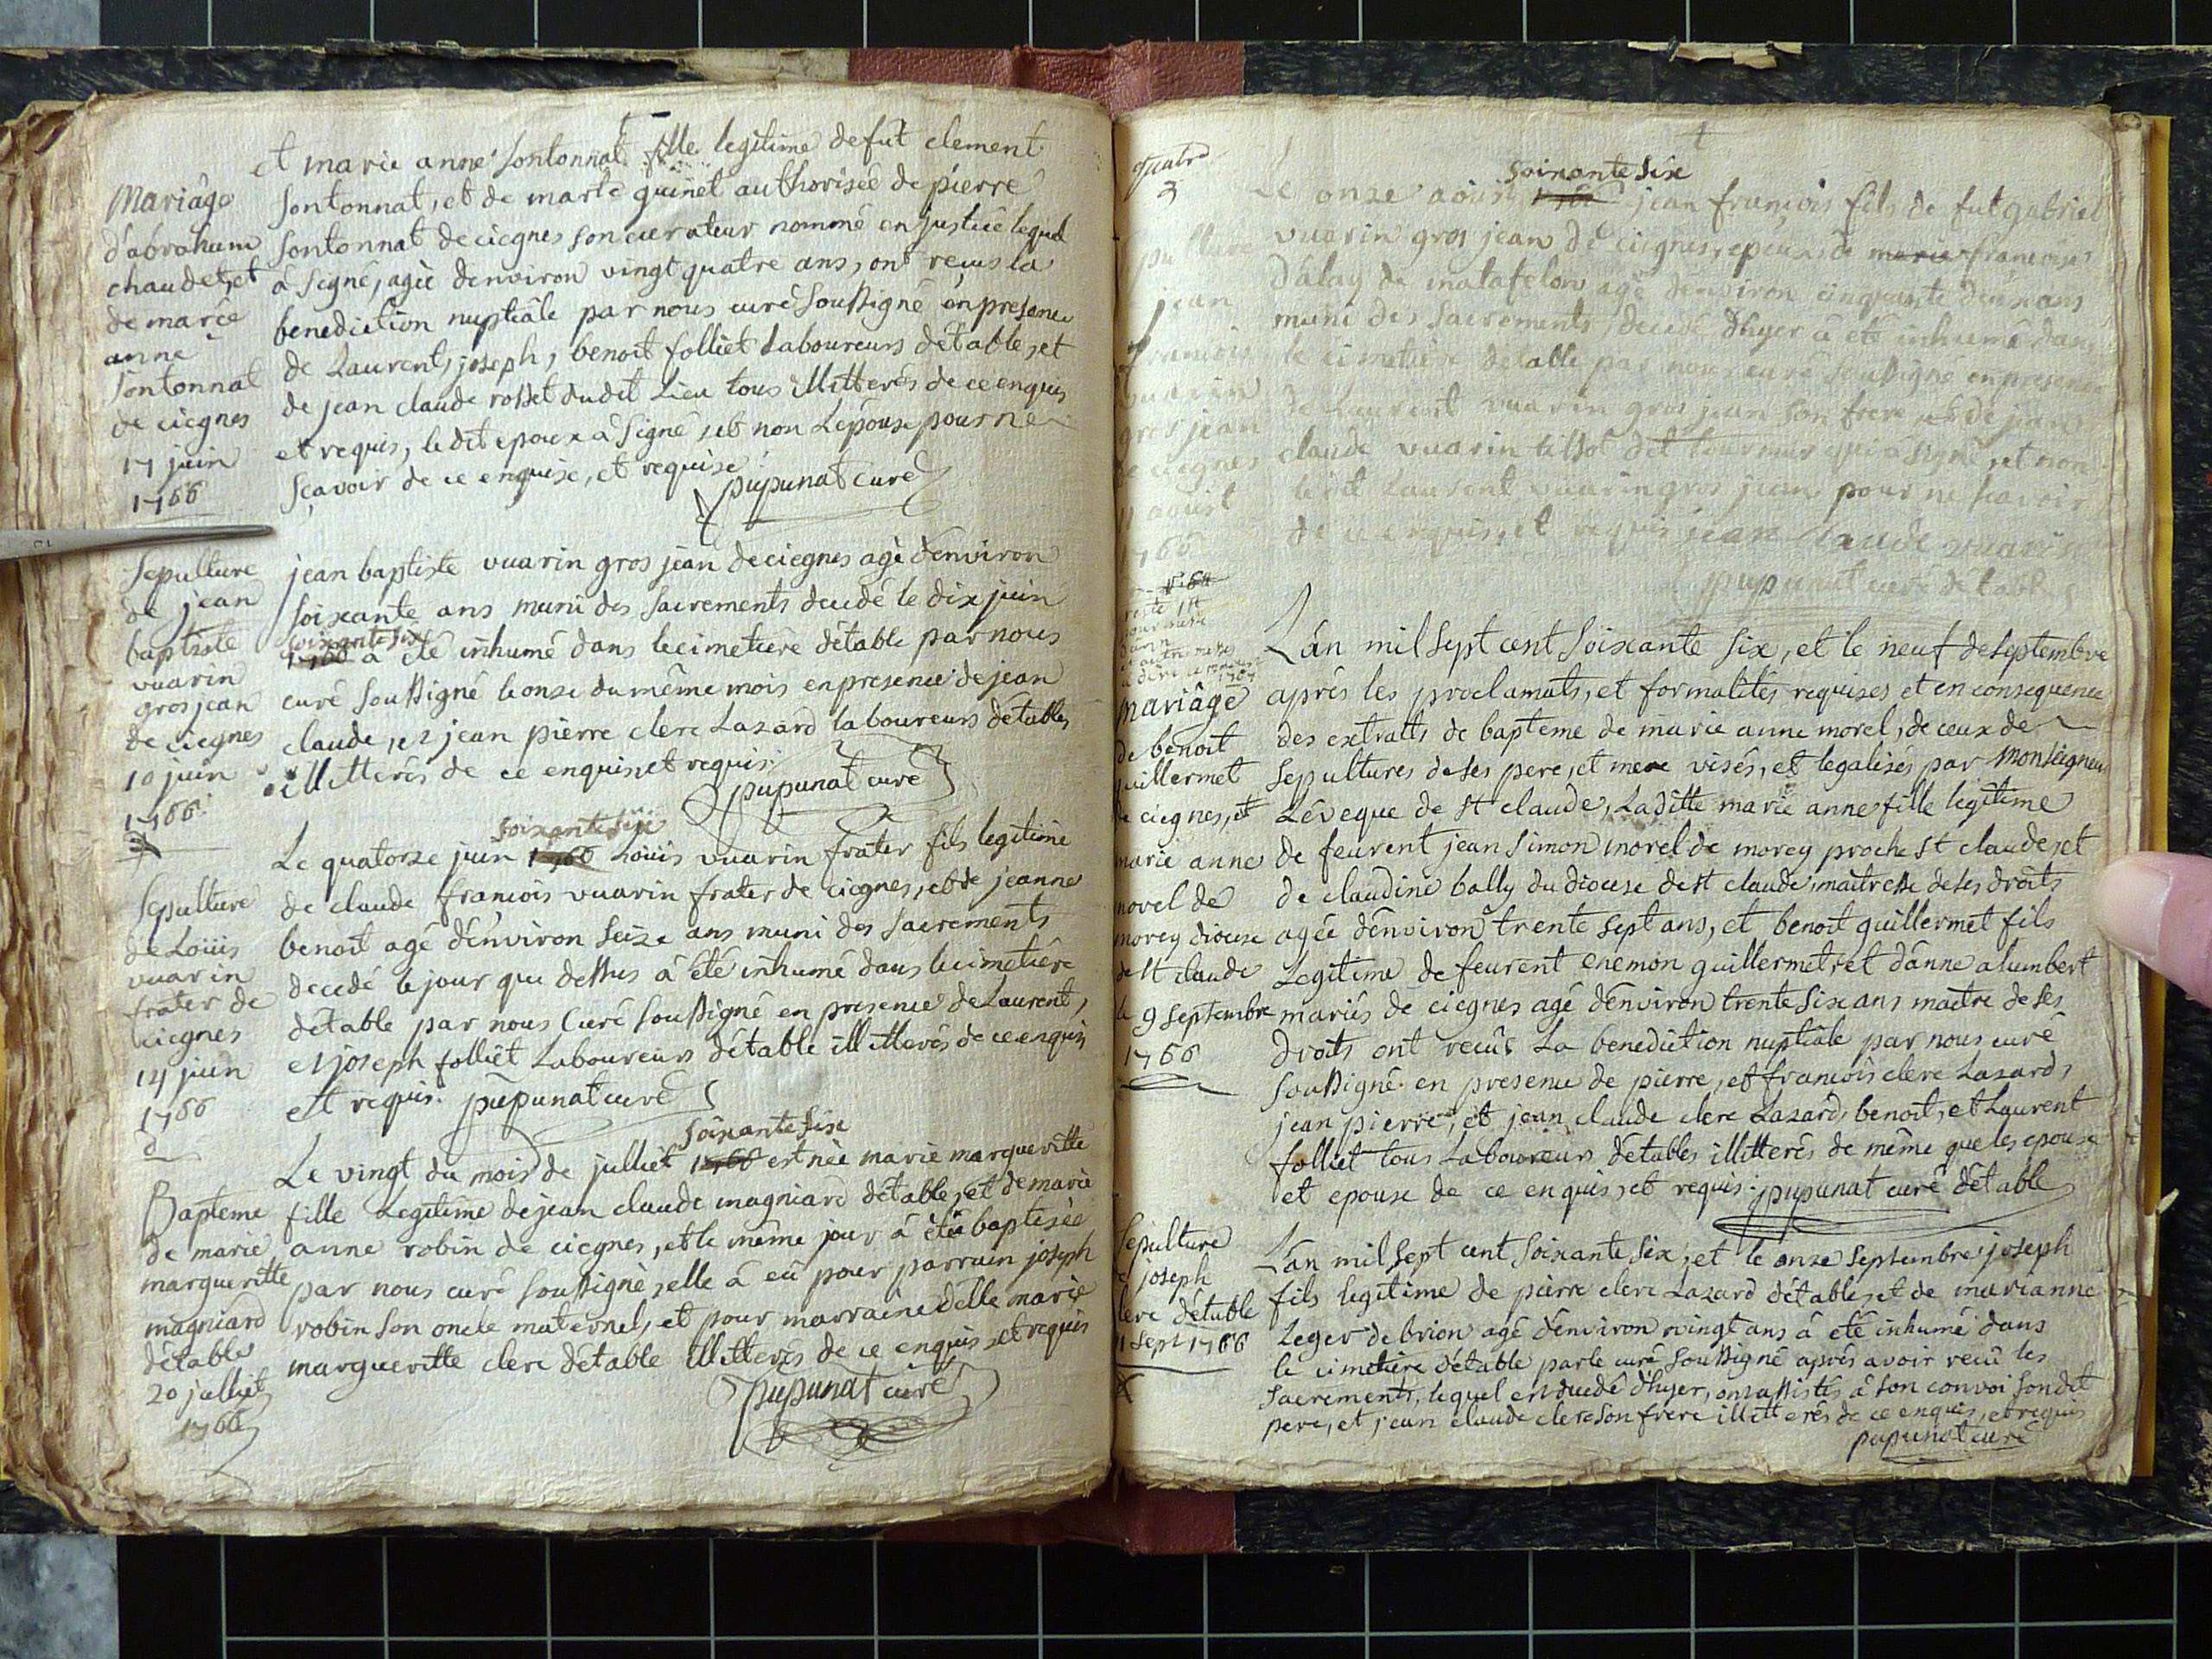 et marie anne Sontonnat fille legitime defut clement
Mariâge
d'abraham
chaudet, et
de marie
anne
Sontonnat
de ciegnes
17 juin
1766
Sontonnat, et de marie guinet authorisée de pierre
Sontonnat de ciegnes son curateur nommé en justice lequel
à signé, agée denviron vingt quatre ans, ont recus la
benediction nuptiâle par nous curé soussigné en presence
de Laurent, joseph, benoit folliet Laboureurs détable, et
de jean claude rosset dudit Lieu tous illitterés de ce enquis
et requis, le dit epoux à signé, et non Lépouse pour ne
sçavoir de ce enquise, et requise
pupunat curé
Sepulture
de jean
baptiste
vuarin
gros jean
de ciegnes
10 juin
1766
jean baptiste vuarin gros jean de ciegnes agé denviron
soixante ans muni des sacrements decedé le dix juin
soixante six
1766 à été inhumé dans le cimetiere détable par nous
curé soussigné le onze du même mois en presence de jean
claude, et jean pierre clerc Lazard laboureurs détables
illitterés de ce enquis et requis
pupunat curé
soixante six
Le quatorze juin 1766 Loüis vuarin frater fils legitime
Sepulture
de Loüis
vuarin
frater de
ciegnes
14 juin
1766
de claude francois vuarin frater de ciegnes, et de jeanne
benoit agé dénviron seize ans muni des sacrements
decedé le jour que dessus à été inhumé dans le cimetiére
détable par nous Curé soussigné en presence de Laurent,
et joseph folliet Laboureurs détable illitterés de ce enquis
et requis. pupunat curé
soixante six
Le vingt du mois de julliet 1766 est née marie margueritte
Bapteme
de marie
margueritte
magniard
détable
20 julliet
1766
fille Legitime de jean claude magniard détable, et de marie
anne robin de ciegnes, et le même jour à été baptisée
par nous curé soussigné, elle à eû pour parrain joseph
robin son oncle maternel, et pour marraine délle marie
margueritte clerc détable illitterés de ce enquis, et requis
pupunat curé
quatre
3
soixante six
Le onze aoust 1766 jean francois fils de fut gabriel
vuarin gros jean de ciegnes, epoux de marie francoise
dálay de matafelon agé denviron cinquante deux ans
muni des sacrements, decedé d'hyer à été inhumé dans
le cimetière détable par nous curé soussigné en presence
de Laurent vuarin gros jean son frere, et de jean
claude vuarin tissot dit tourneur qui à signé, et non
ledit Laurent vuarin gros jean pour ne scavoir
de ce enquis, et requis jean claude vuarin
pupunat curé détable
jean
francois
vuarin
gros jean
de ciegnes
11 aoust
1766
Lán mil sept cent soixante six, et le neuf de septembre
Mariâge
de benoit
guillermet
de ciegnes, et
marie anne
morel de
morey diocese
de st claude
le 9 septembre
1766
aprés les proclamats, et formalités requises et en consequence
des extraits de bapteme de marie anne morel, de ceux de
sepultures de ses pere, et mere visés, et legalisés par Monseigneur
Léveque de st claude, Laditte marie anne fille legitime
de feurent jean simon morel de morey proche st claude, et
de claudine bally du diocese de st claude, maitresse de ses droits
agée dénviron trente sept ans, et benoit guillermet fils
Legitime de feurent enemon guillermet, et dánne alumbert
mariés de ciegnes agé dénviron trente six ans maitre de ses
droits ont recûs La benediction nuptiâle par nous curé
soussigné en presence de pierre, et francois clerc Lazard,
jean pierre, et jean claude clerc Lazard, benoit, et Laurent
folliet tous Laboureurs détables illitterés de même que les epoux
et epouse de ce enquis, et requis. pupunat curé détable
Sepulture
de joseph
clerc détable
11 sept 1766
Lán mil sept cent soixante six, et le onze septembre joseph
fils legitime de pierre clerc Lazard détable, et de marianne
Leger de brion agé dénviron vingt ans à été inhumé dans
le cimetière détable par le curé soussigné aprés avoir recû les
sacrements, lequel est decedé d'hyer, ont assistés à son convoi son dit
pere, et jean claude clerc son frere illitterés de ce enquis, et requis
pupunat curé